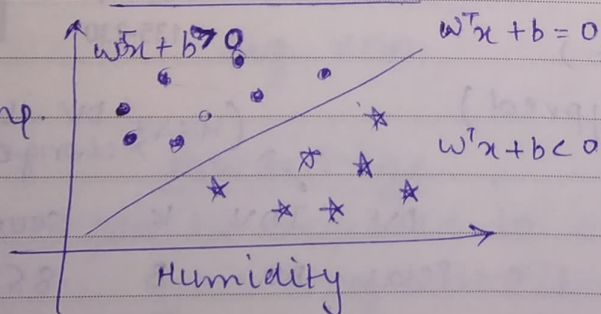 wᵀx + b > 0
wᵀx + b = 0
p.
wᵀx + b < 0
Humidity